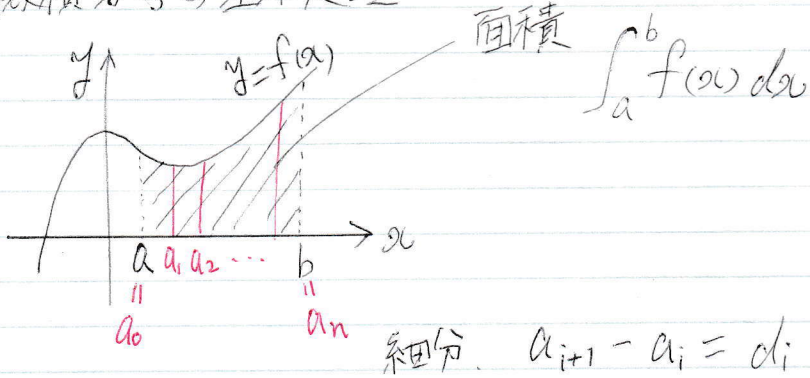 面積
y
y=f(x)
∫_a^b f(x) dx
x
a a₁ a₂ ... b
〃 〃
a₀ aₙ
細分. a_{i+1} - a_i = d_i